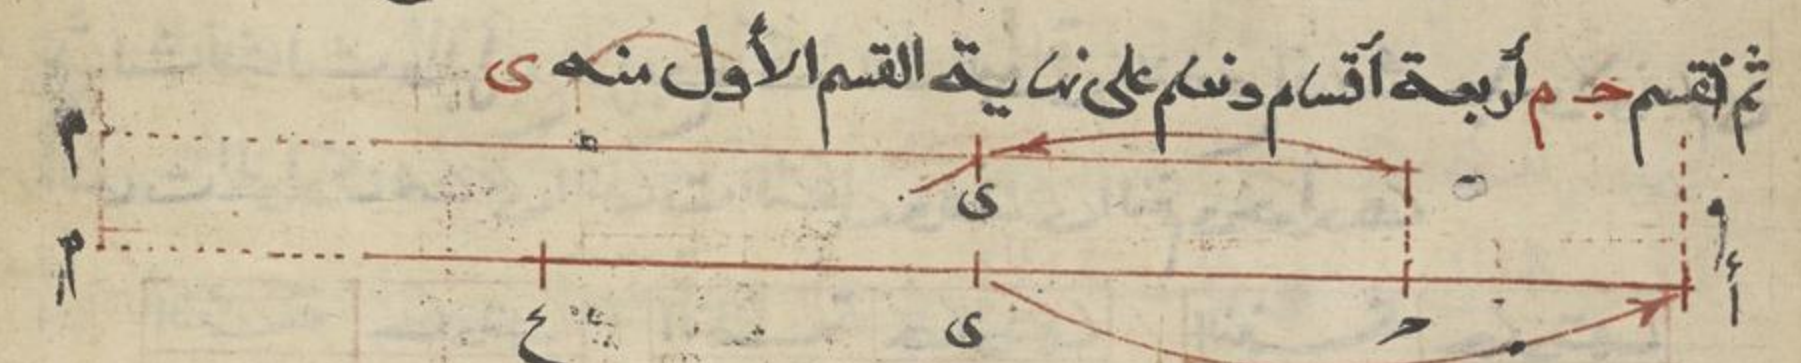 ثم نقسم جـ م أربعة أقسام ونعلم على نهاية القسم الأول منه ى
م
ى
م أ
ع ى حـ